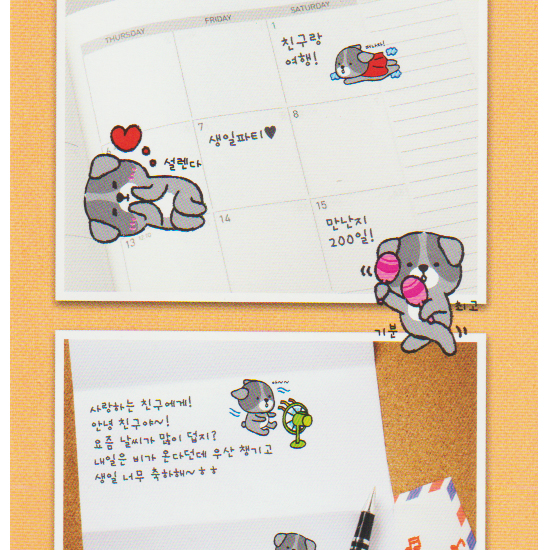 THURSDAY
FRIDAY
SATURDAY
1
친구랑
여행!
7
생일파티♥
8
설렌다
13
14
15
만난지
200일!
최고
기분
사랑하는 친구에게!
안녕 친구야~!
요즘 날씨가 많이 덥지?
내일은 비가 온다던데 우산 챙기고
생일 너무 축하해~ㅎㅎ